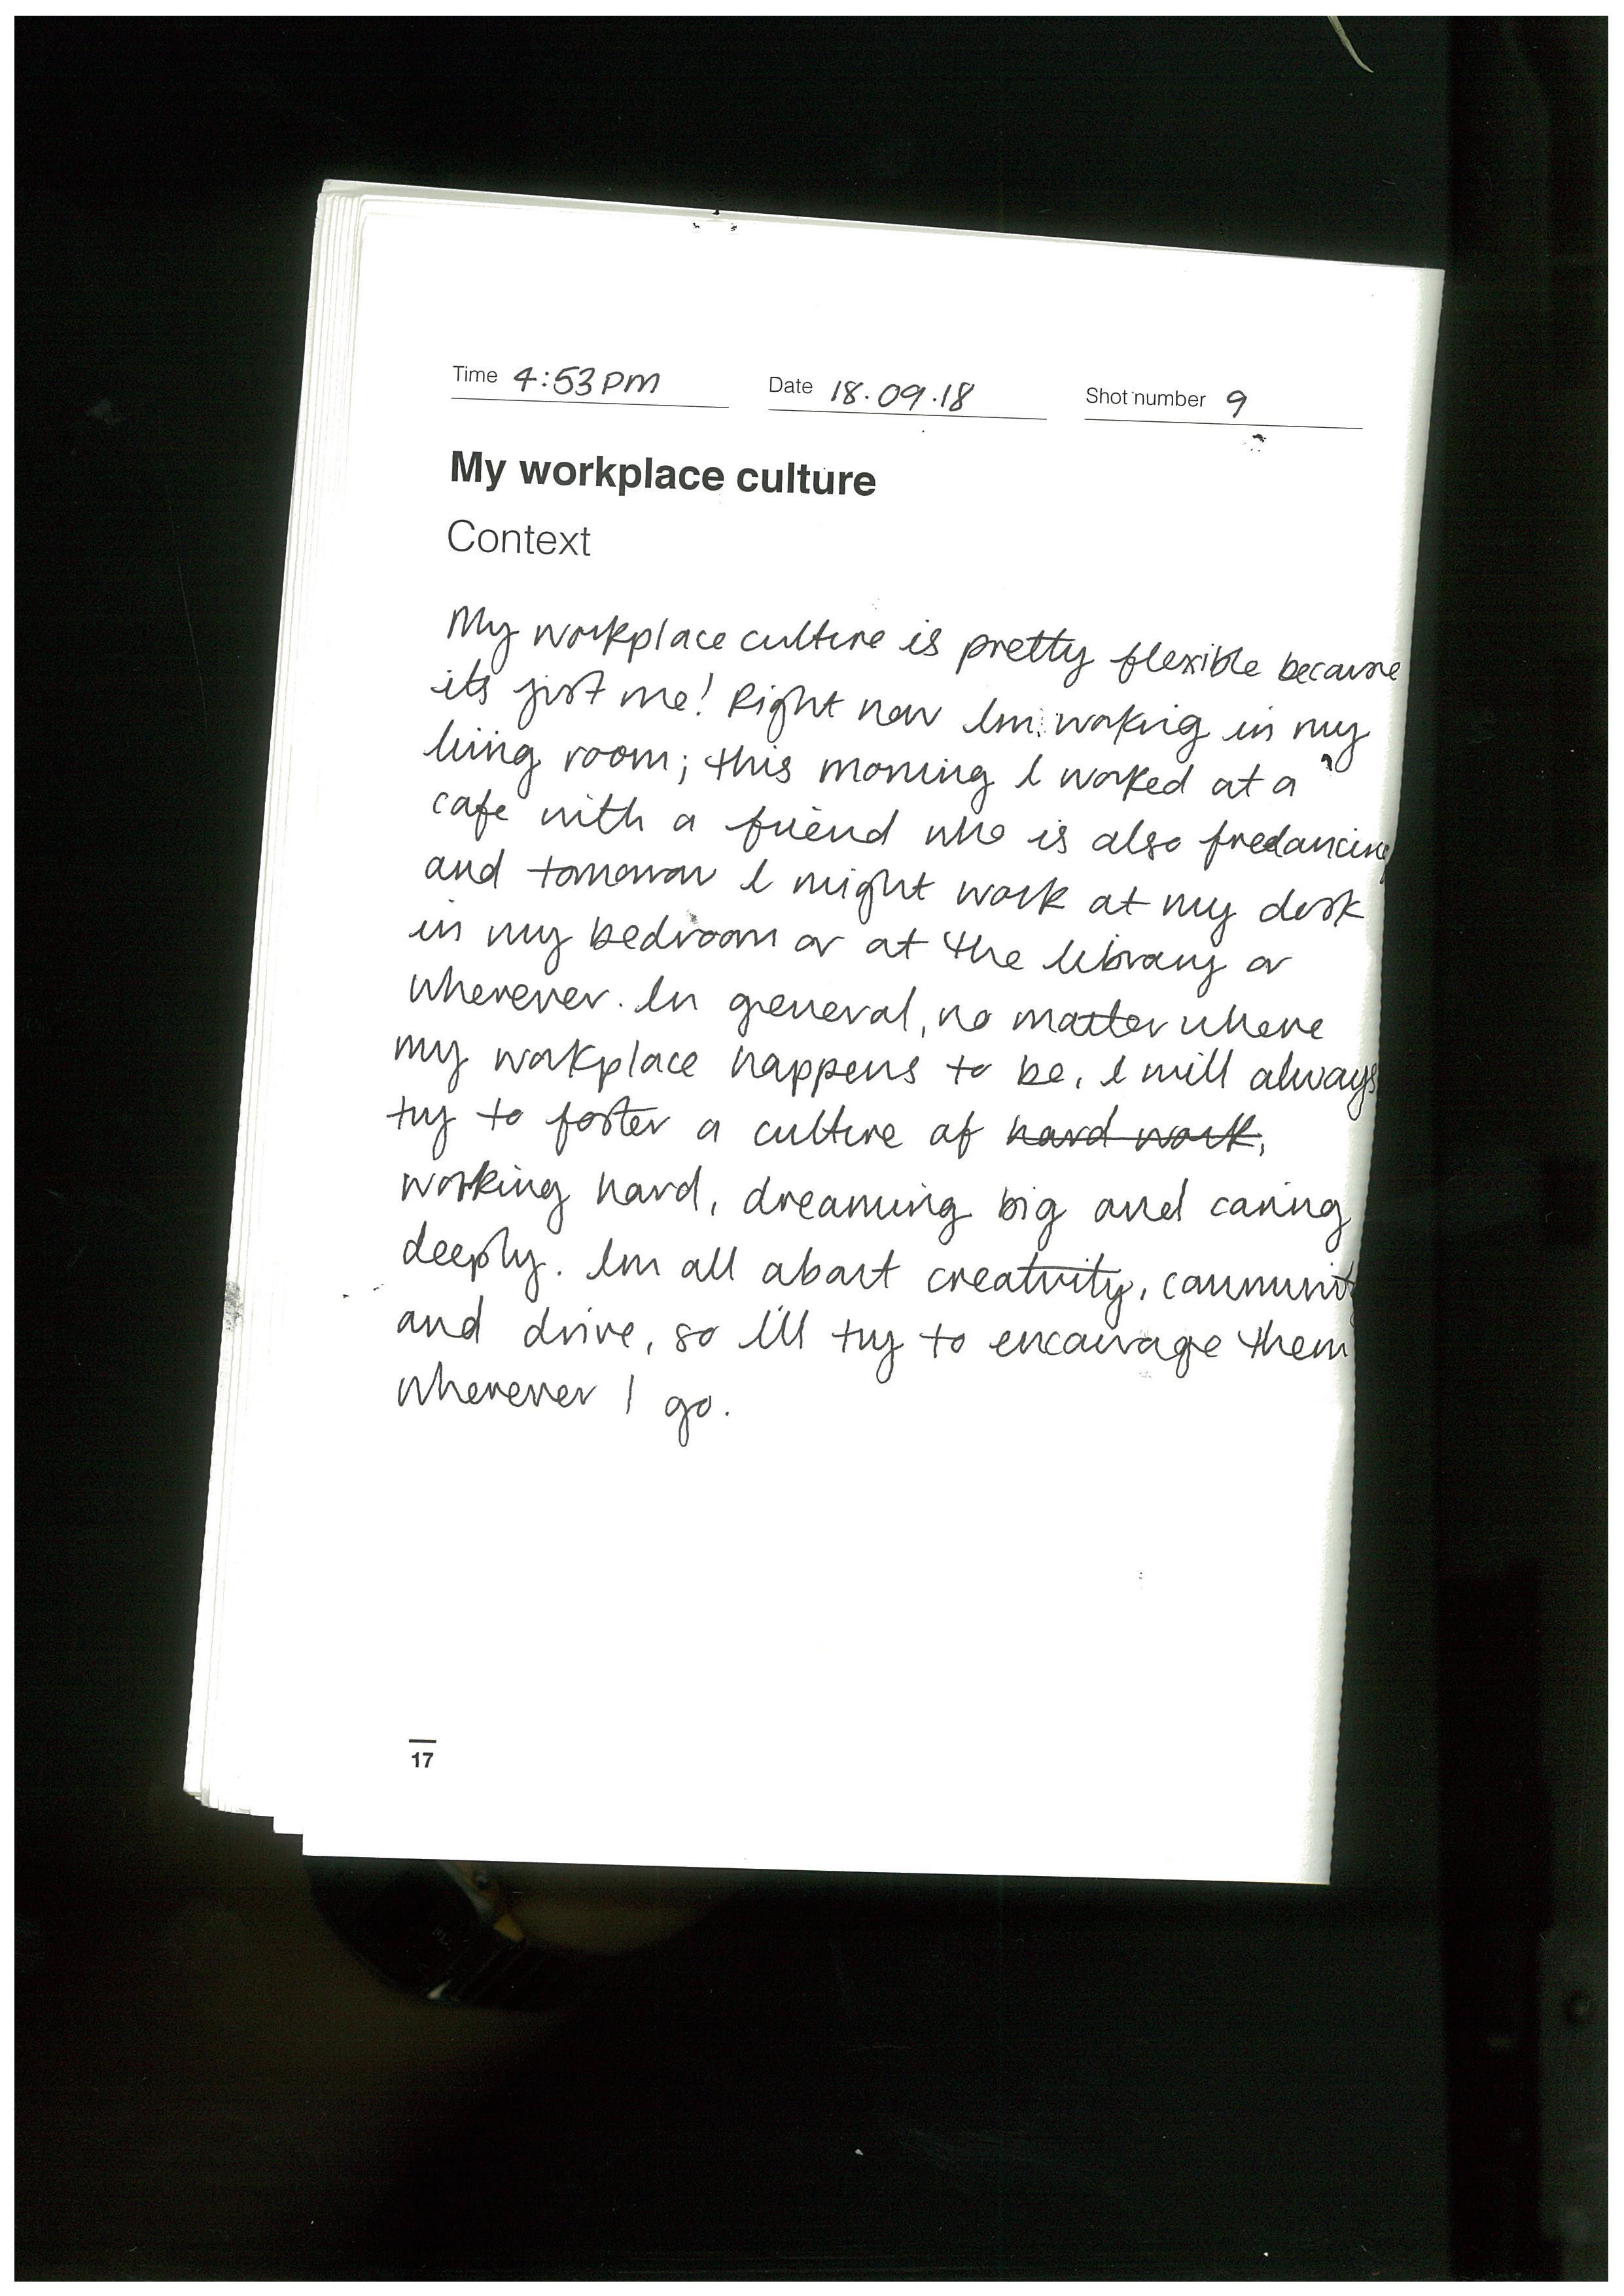 Time 4:53PM Date 18.09.18 Shot number 9
My workplace culture
Context
My workplace culture is pretty flexible because
its just me! Right now Im working in my
living room; this morning I worked at a
cafe with a friend who is also freelancing
and tomorrow I might work at my desk
in my bedroom or at the library or
wherever. In general, no matter where
my workplace happens to be, I will always
try to foster a culture of hard work,
working hard, dreaming big and caring
deeply. Im all about creativity, community
and drive, so I'll try to encourage them
wherever I go.
17